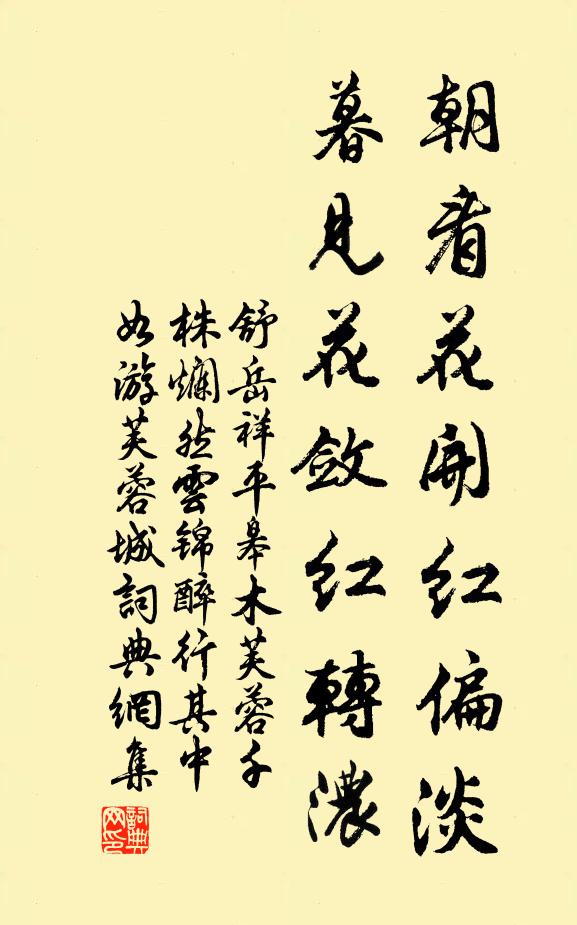 朝看花開紅偏淡
暮見花斂紅轉濃
舒岳祥平皋木芙蓉千
株爛然雲錦醉行其中
如游芙蓉城詞典網集
詞典
网印